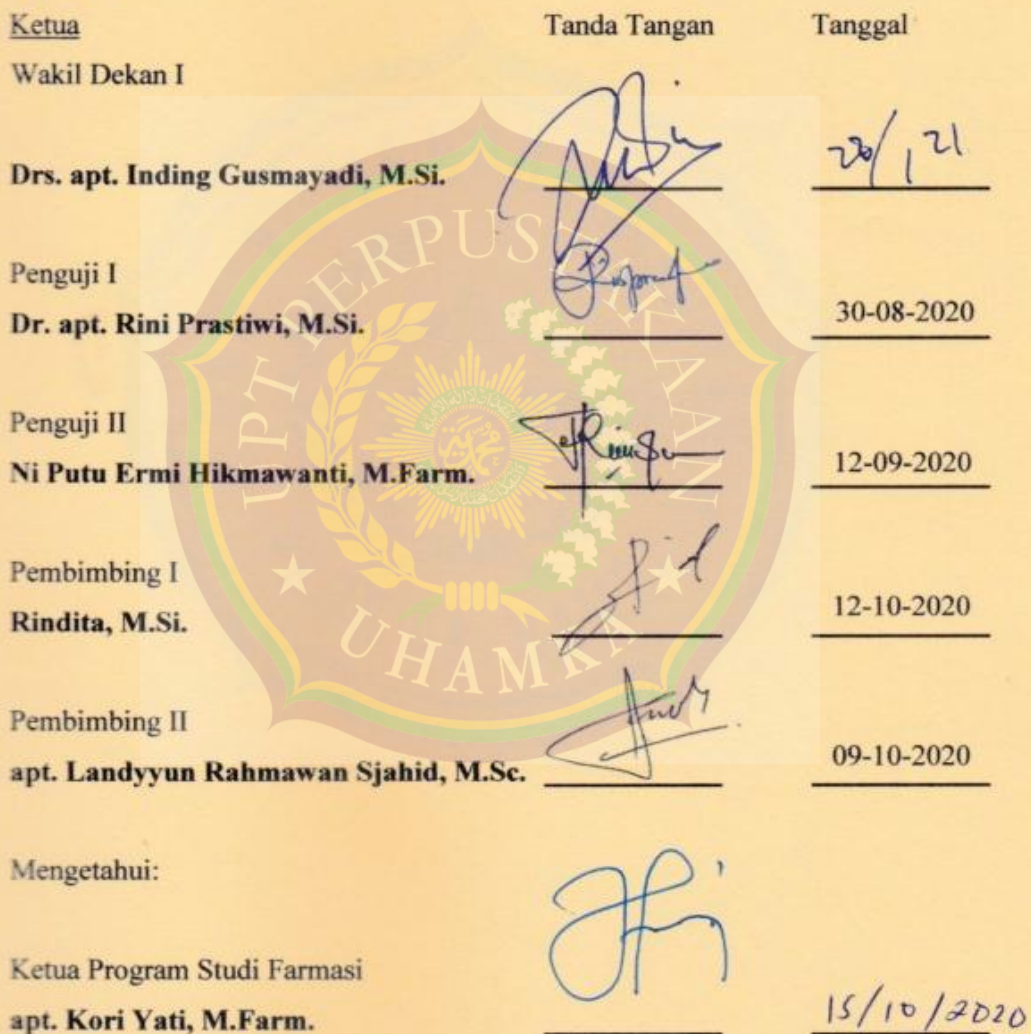 Ketua Tanda Tangan Tanggal
Wakil Dekan I
Drs. apt. Inding Gusmayadi, M.Si. 21
Penguji I
Dr. apt. Rini Prastiwi, M.Si. 30-08-2020
Penguji II
Ni Putu Ermi Hikmawanti, M.Farm. 12-09-2020
Pembimbing I
Rindita, M.Si. 12-10-2020
Pembimbing II
apt. Landyyun Rahmawan Sjahid, M.Sc. 09-10-2020
Mengetahui:
Ketua Program Studi Farmasi
apt. Kori Yati, M.Farm. 15/10/2020
UPT PERPUSTAKAAN
UHAMKA